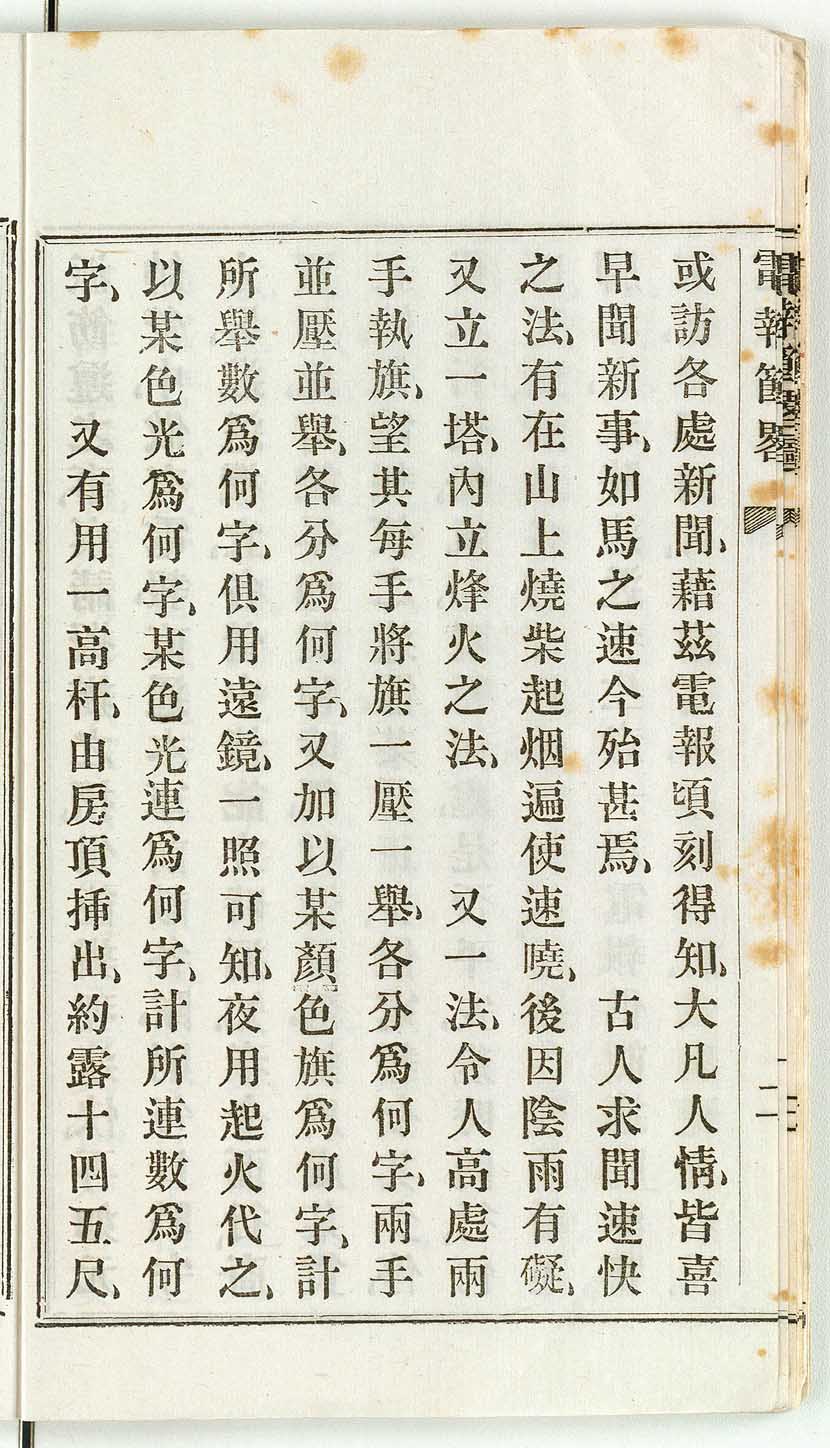 電報節畧
二
或訪各處新聞、藉茲電報頃刻得知、大凡人情、皆喜
早聞新事、如馬之速今殆甚焉、　古人求聞速快
之法、有在山上燒柴起烟遍使速曉、後因陰雨有礙、
又立一塔、內立烽火之法、　又一法、令人高處兩
手執旗、望其每手將旗一壓一舉、各分爲何字、兩手
並壓並舉、各分爲何字、又加以某顏色旗爲何字、計
所舉數爲何字、俱用遠鏡、一照可知、夜用起火代之、
以某色光爲何字、某色光連爲何字、計所連數爲何
字、　又有用一高杆、由房頂揷出、約露十四五尺、